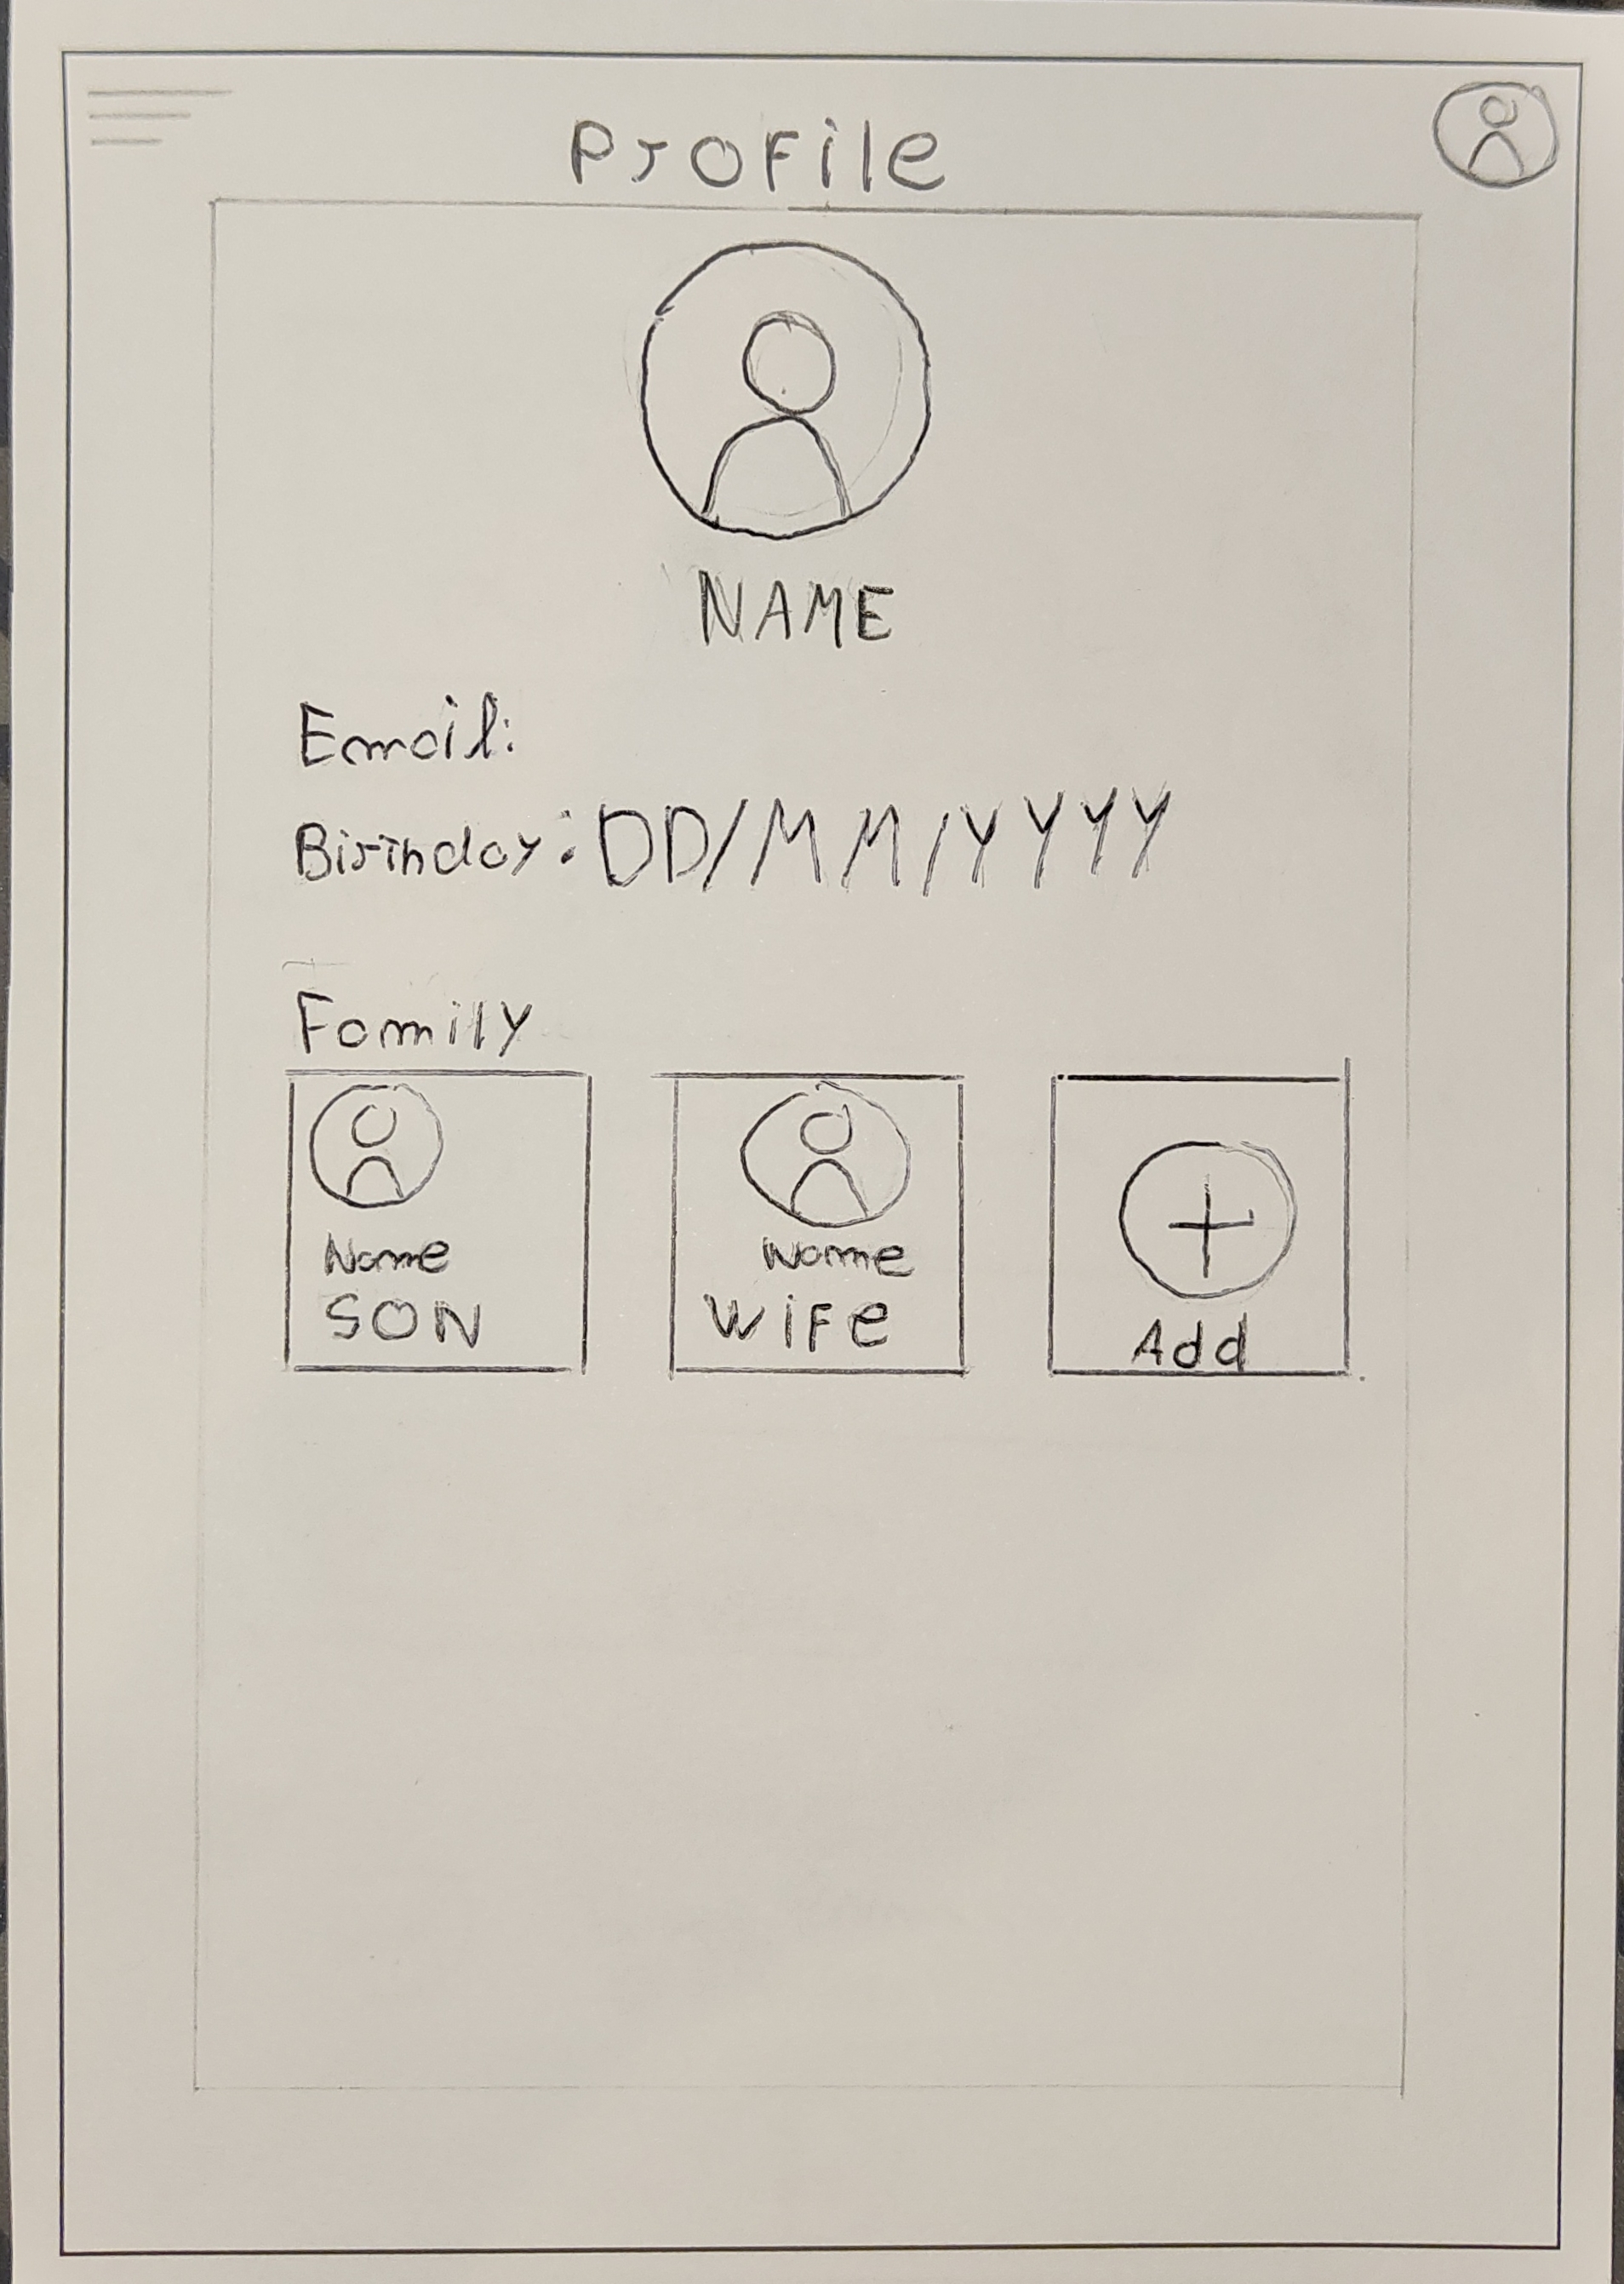 Profile
NAME
Email:
Birthday: DD/MM/YYYY
Family
Name
SON
Name
Wife
Add